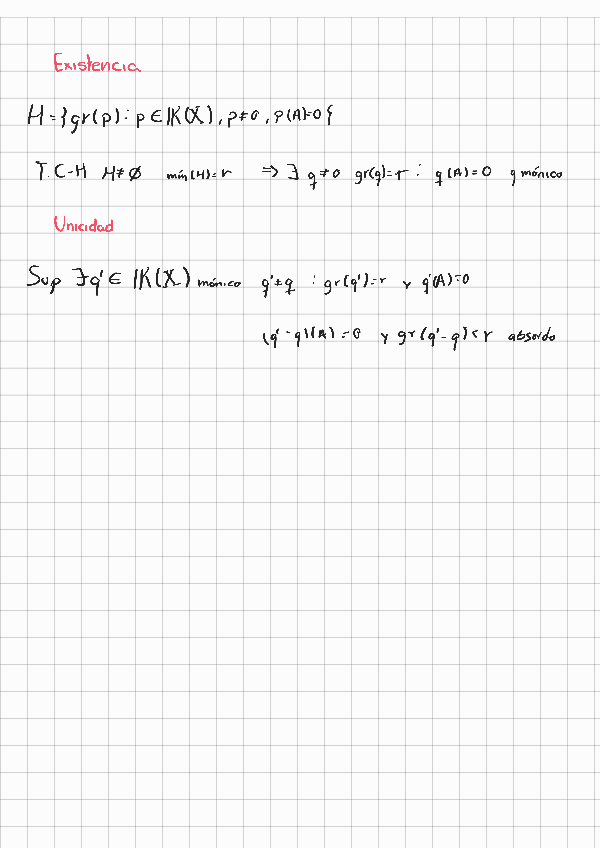 Existencia
H = {gr(p) : p ∈ IK(X), p ≠ 0, p(A)=0}
T.C-H H ≠ ∅ mín(H)=r ⇒ ∃ q ≠ 0 gr(q)=r : q(A)=0 q mónico
Unicidad
Sup ∃ q' ∈ IK(X) mónico q' ≠ q : gr(q')=r y q'(A)=0
(q'-q)(A)=0 y gr(q'-q)<r absurdo